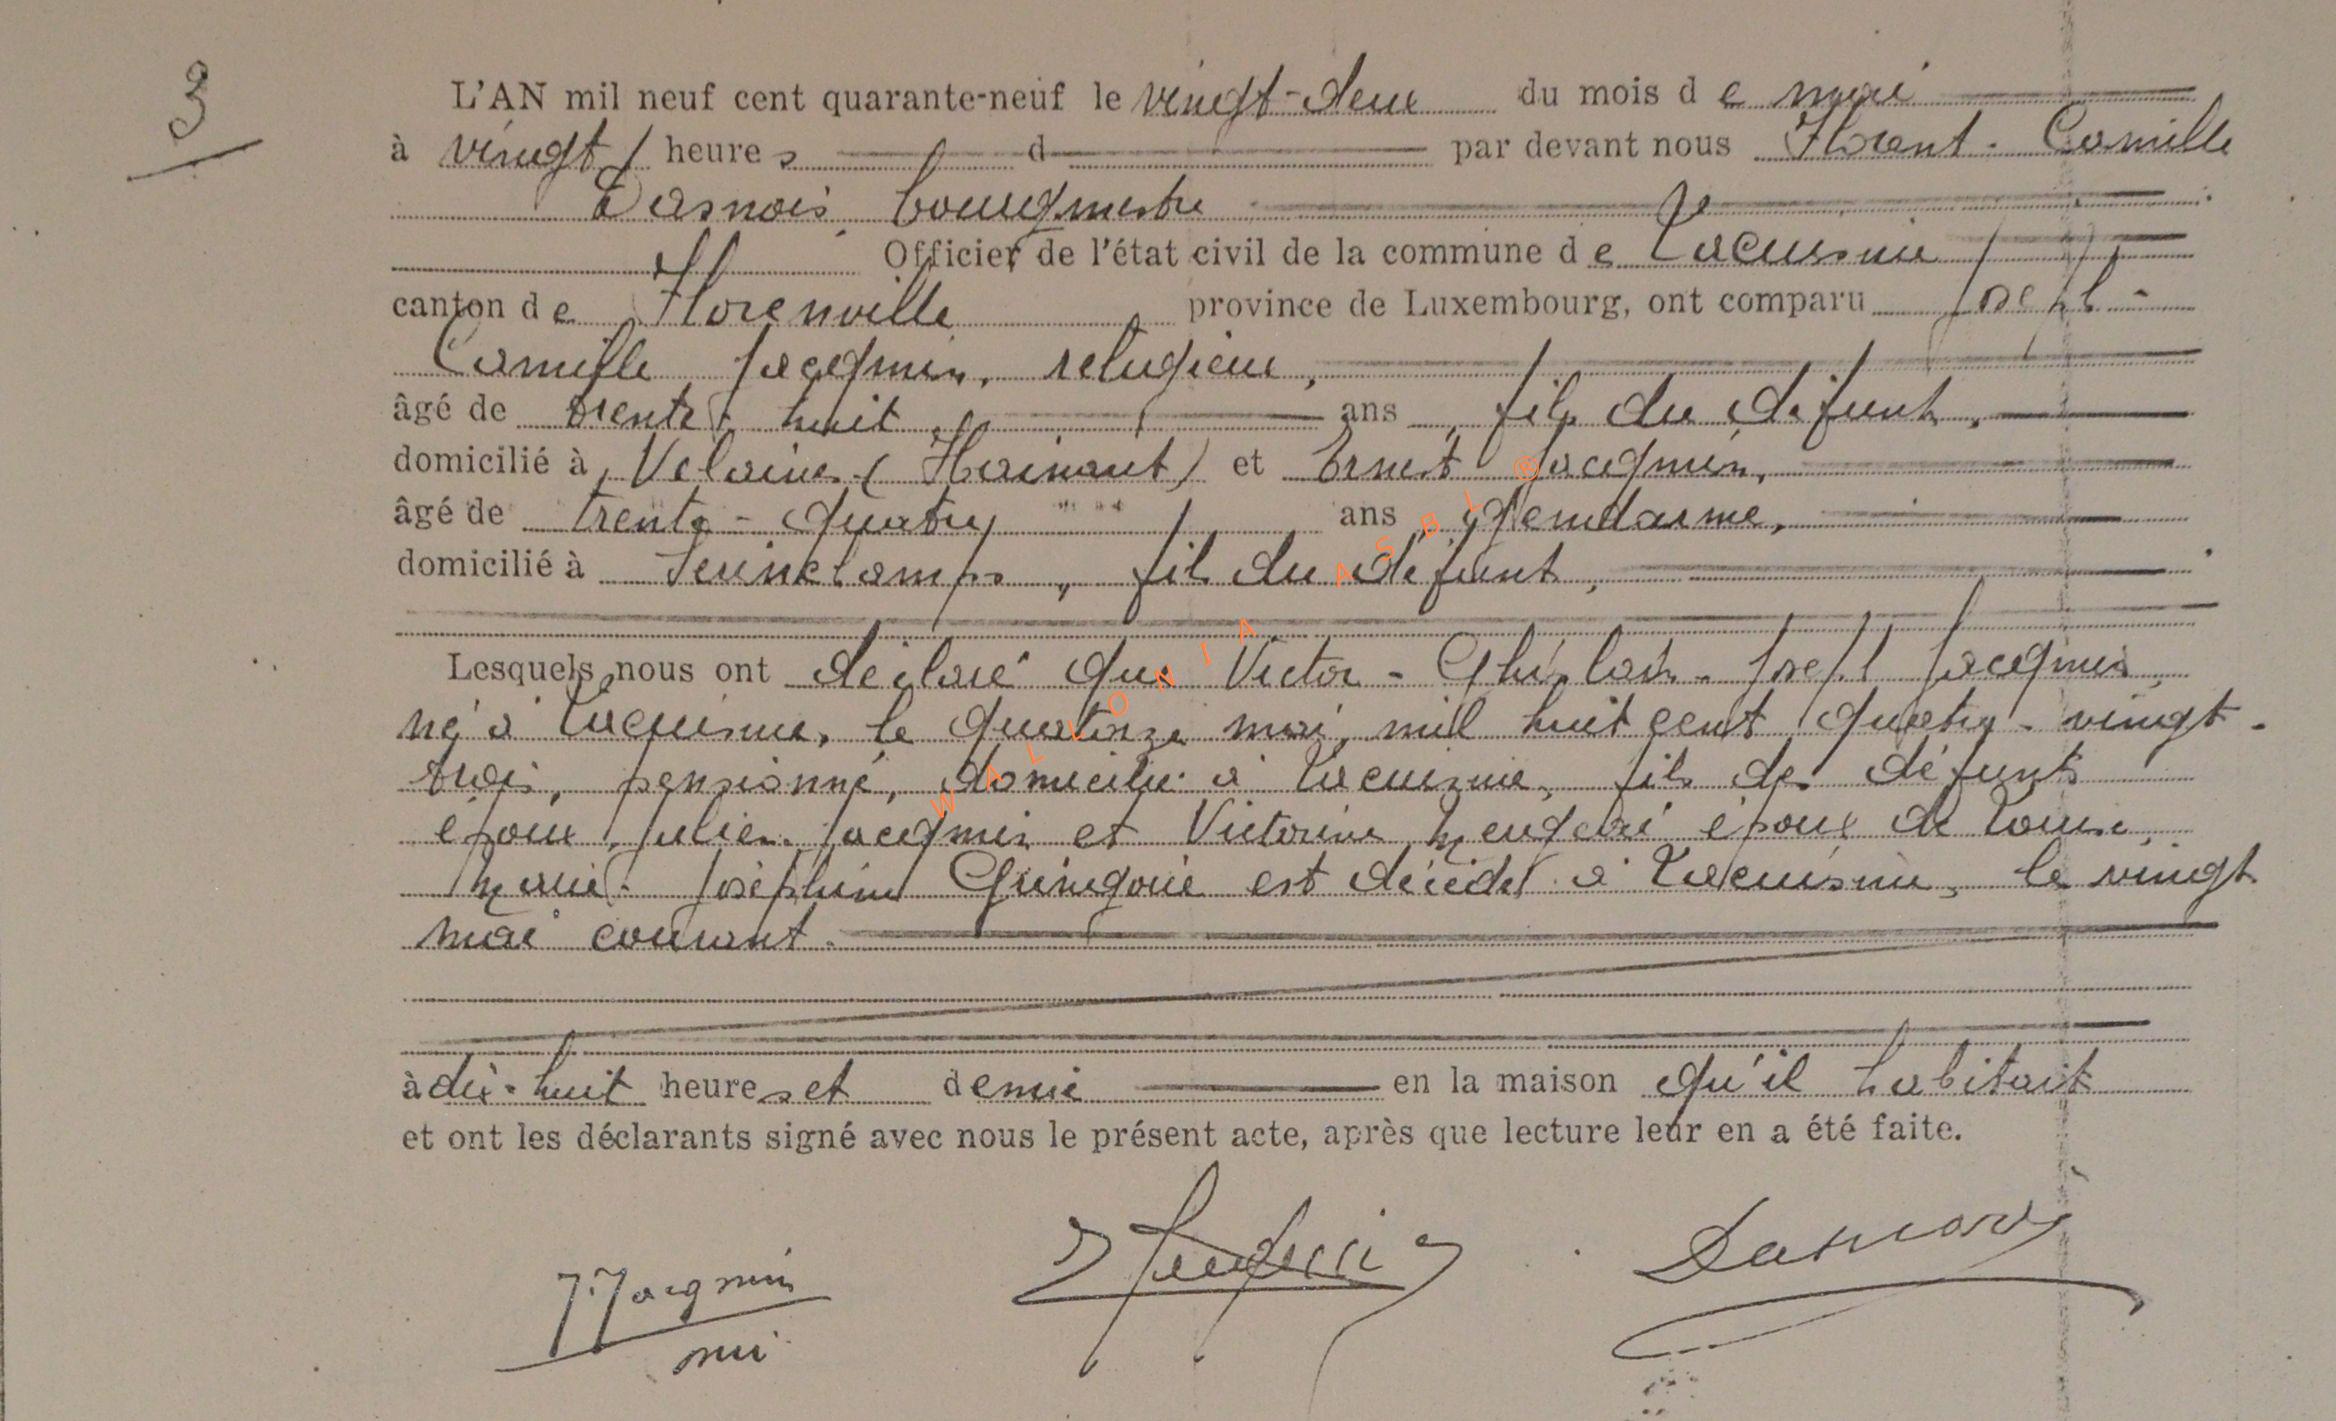 3
L'AN mil neuf cent quarante-neuf le vingt-deux du mois d e mai
à vingt heure s d par devant nous Florent - Camille
Dasnois, bourgmestre
Officier de l'état civil de la commune d e Lacuisine
canton d e Florenville province de Luxembourg, ont comparu Joseph -
Camille Jacqmin, religieux,
âgé de trente - huit ans, fils du défunt,
domicilié à Velaines (Hainaut) et Ernest Jacqmin,
âgé de trente - quatre ans, gendarme,
domicilié à , fils du défunt,
Lesquels nous ont déclaré que Victor - Ghislain - Joseph Jacqmin,
né à Lacuisine, le quatorze mai, mil huit cent quatre - vingt -
trois, pensionné, domicilié à Lacuisine, fils des défunts
époux Julien Jacqmin et Victorine époux de Louise
Marie - Joséphine est décédé à Lacuisine, le vingt
mai courant.
à dix - huit heure s et d emie en la maison qu'il habitait
et ont les déclarants signé avec nous le présent acte, après que lecture leur en a été faite.
J. Jacqmin Dasnois
WALLONIA ASBL ®